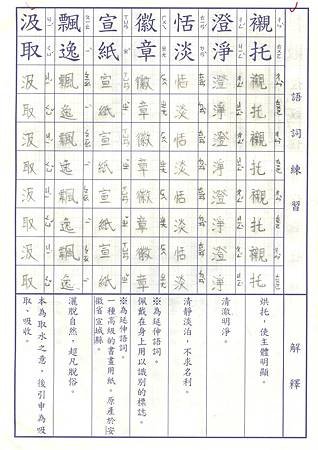 語詞練習
解釋
襯托
襯托
襯托
襯托
襯托
烘托，使主體明顯。
澄淨
澄淨
澄淨
澄淨
澄淨
清澈明淨。
恬淡
恬淡
恬淡
恬淡
恬淡
清靜淡泊，不求名利。
徽章
徽章
徽章
徽章
徽章
※為延伸語詞。
佩戴在身上用以識別的標誌。
宣紙
宣紙
宣紙
宣紙
宣紙
※為延伸語詞。
一種高級的書畫用紙。原產於安
徽省宣城縣。
飄逸
飄逸
飄逸
飄逸
飄逸
灑脫自然，超凡脫俗。
汲取
汲取
汲取
汲取
汲取
本為取水之意，後引申為吸
取、吸收。